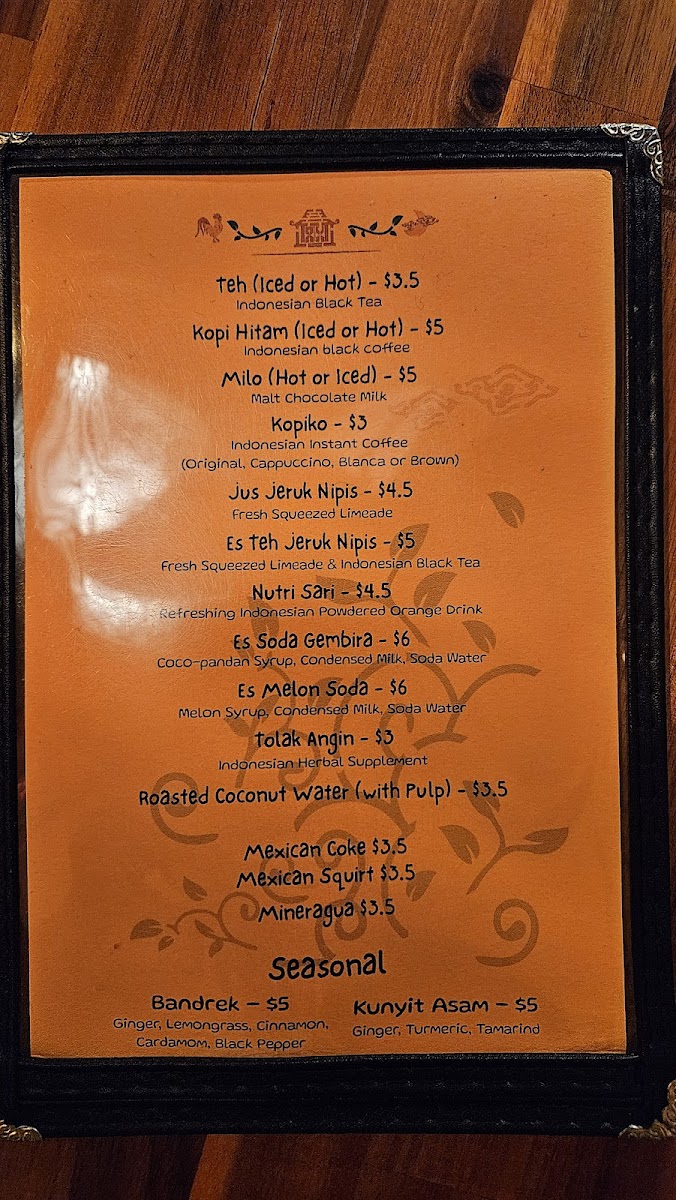 Teh (Iced or Hot) - $3.5
Indonesian Black Tea
Kopi Hitam (Iced or Hot) - $5
Indonesian black coffee
Milo (Hot or Iced) - $5
Malt Chocolate Milk
Kopiko - $3
Indonesian Instant Coffee
(Original, Cappuccino, Blanca or Brown)
Jus Jeruk Nipis - $4.5
Fresh Squeezed Limeade
Es Teh Jeruk Nipis - $5
Fresh Squeezed Limeade & Indonesian Black Tea
Nutri Sari - $4.5
Refreshing Indonesian Powdered Orange Drink
Es Soda Gembira - $6
Coco-pandan Syrup, Condensed Milk, Soda Water
Es Melon Soda - $6
Melon Syrup, Condensed Milk, Soda Water
Tolak Angin - $3
Indonesian Herbal Supplement
Roasted Coconut Water (with Pulp) - $3.5
Mexican Coke $3.5
Mexican Squirt $3.5
Mineragua $3.5
Seasonal
Bandrek - $5
Ginger, Lemongrass, Cinnamon,
Cardamom, Black Pepper
Kunyit Asam - $5
Ginger, Turmeric, Tamarind